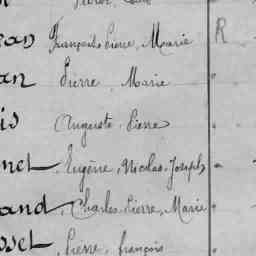 ean François Pierre, Marie R
an Pierre, Marie
is Auguste, Pierre
nel, Eugène, Nicolas, Joseph
and, Charles, Pierre, Marie
sset, Pierre, françois